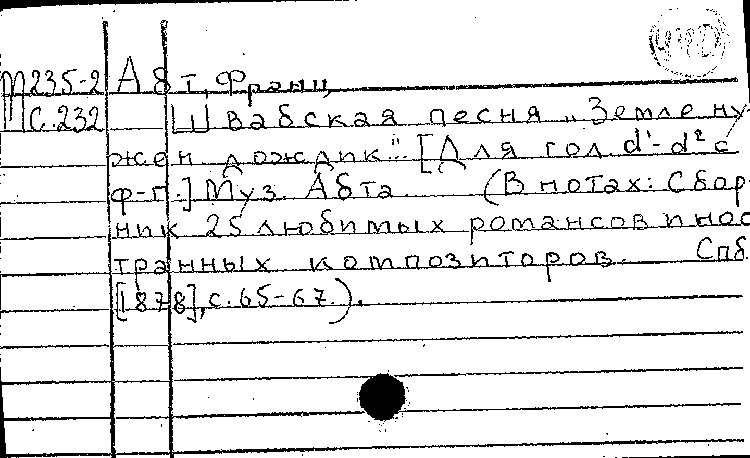 М235-2 Абт, Франц
С.232 Швабская песня „Земле ну-
жен дождик". [Для гол. d'-d² с
ф-п.] Муз. Абта. (В нотах: Сбор-
ник 25 любимых романсов инос-
транных композиторов. Спб.
[1878], с.65-67.).